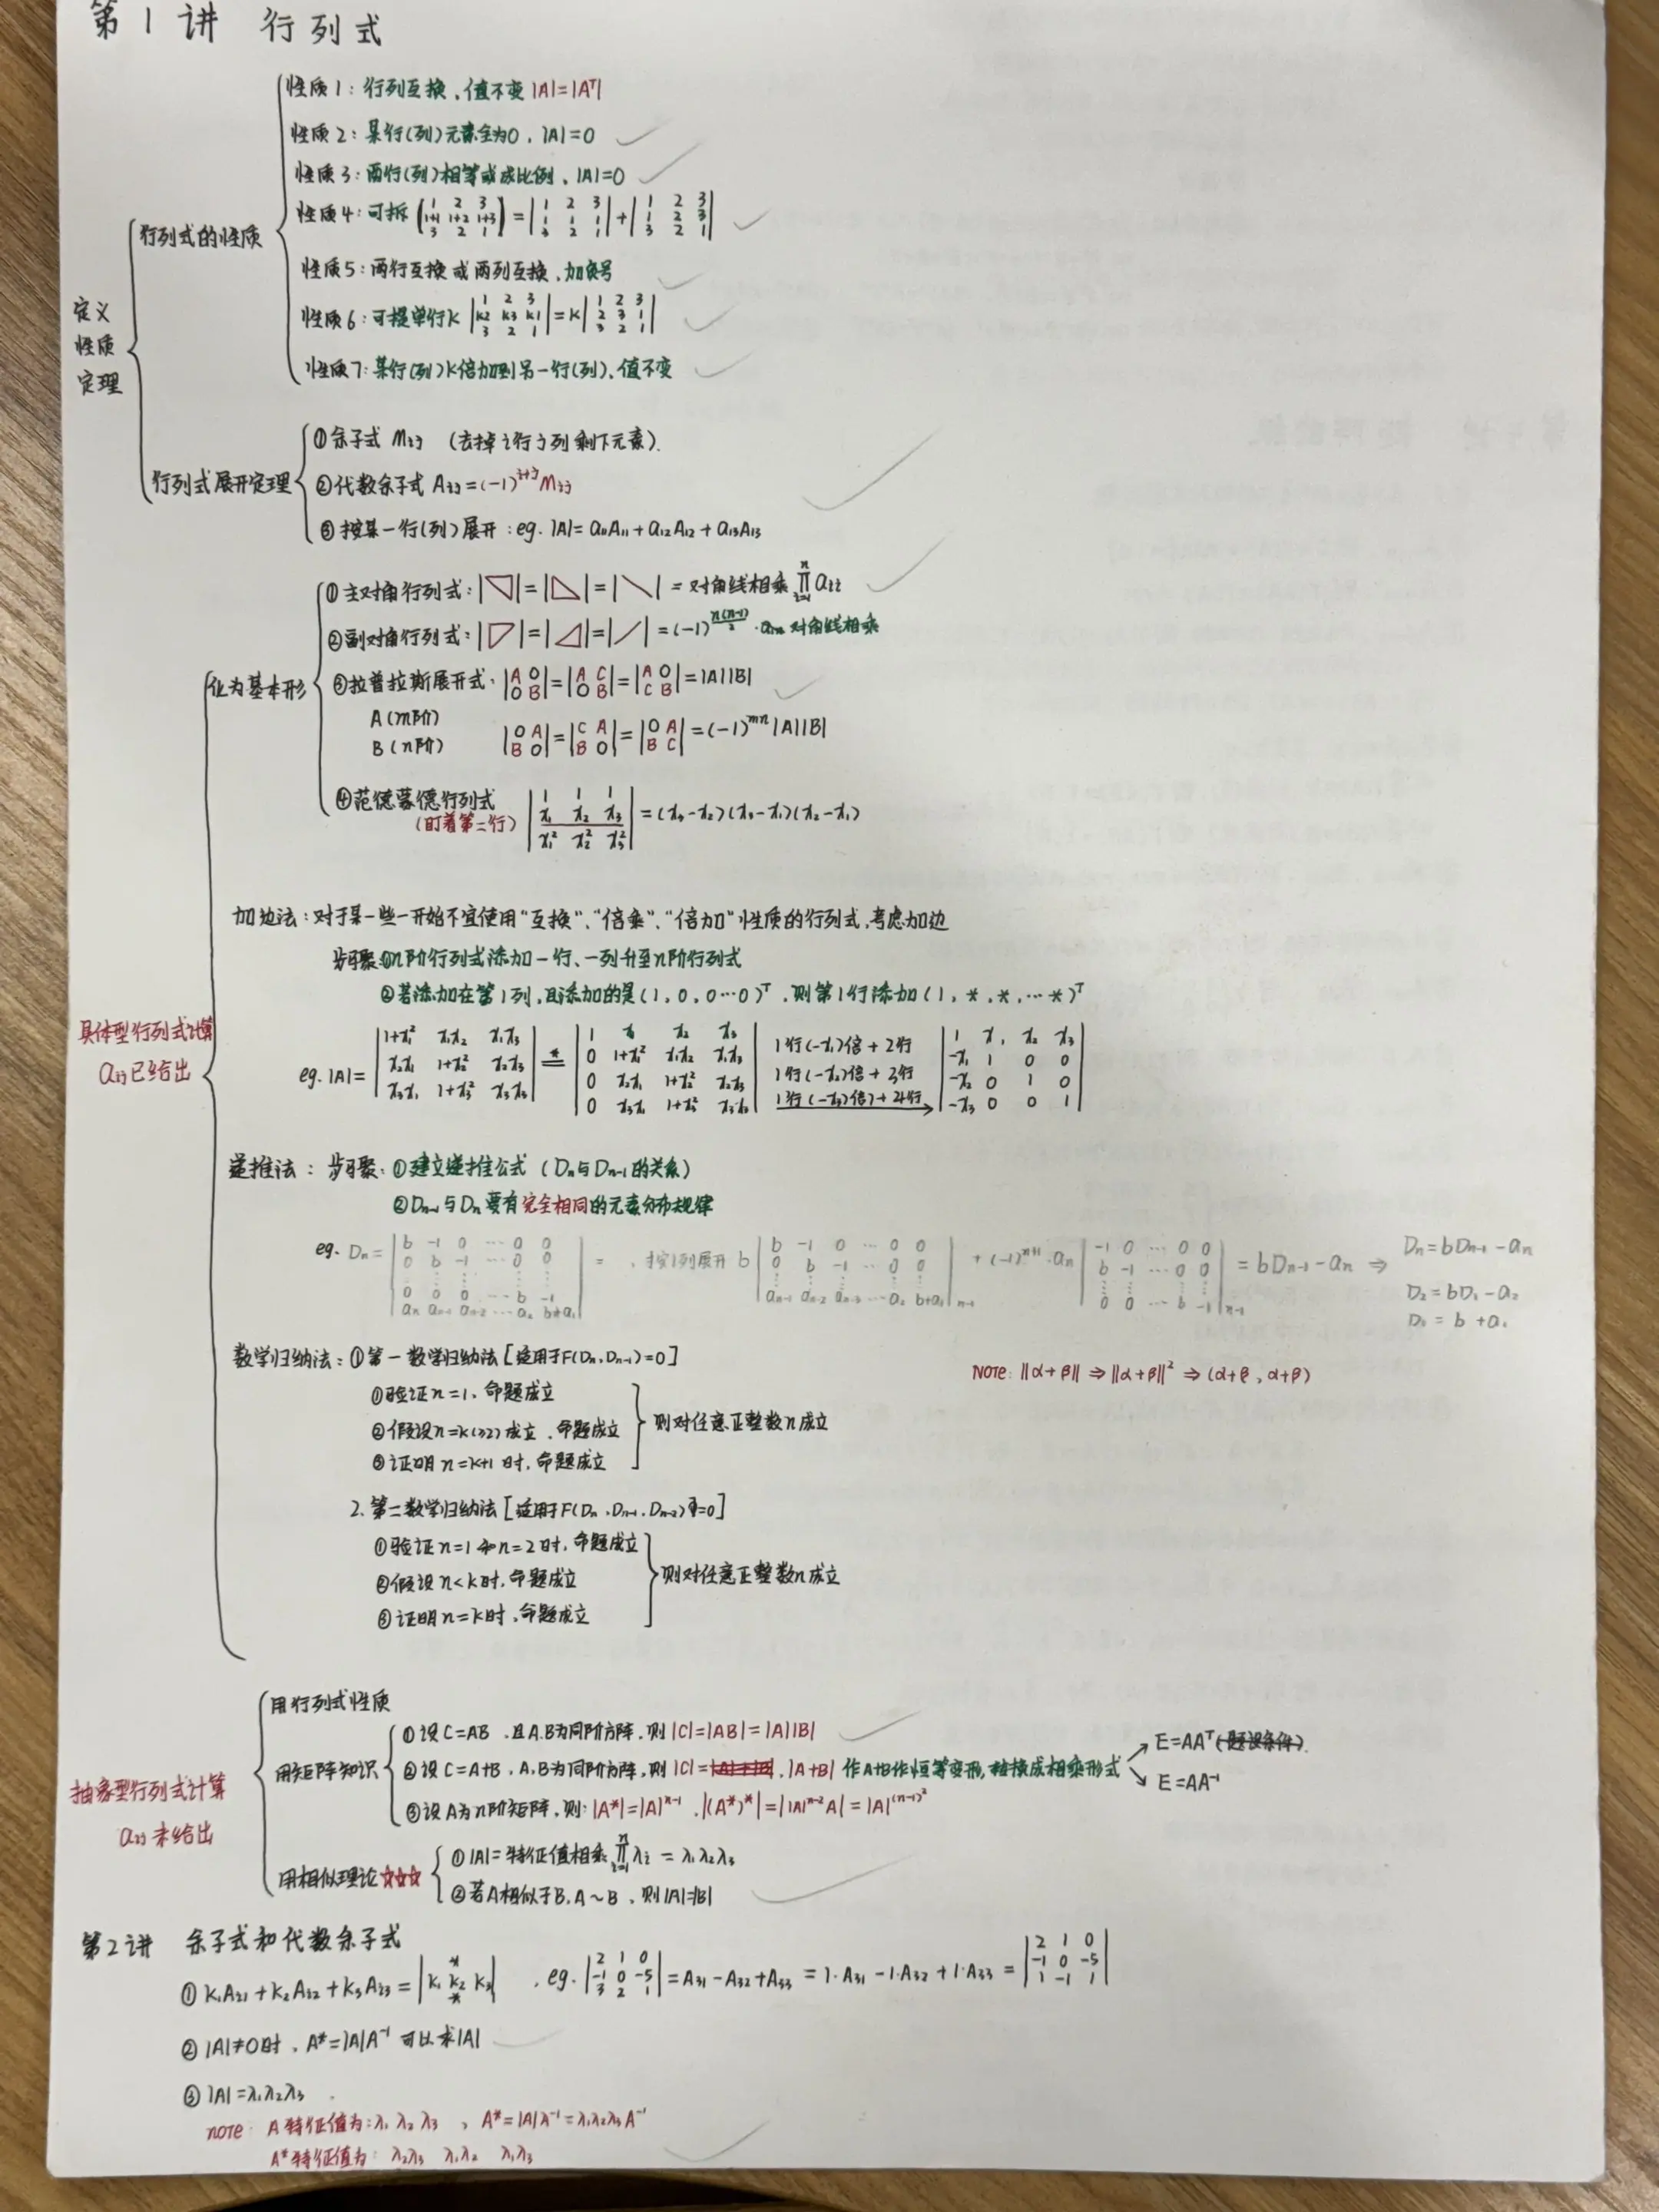 第1讲 行列式
定义
性质
定理
行列式的性质
性质1：行列互换，值不变 |A|=|Aᵀ|
性质2：某行(列)元素全为0，|A|=0
性质3：两行(列)相等或成比例，|A|=0
性质4：可拆 (1 2 3; 1+1 1+2 1+3; 3 2 1) = |1 2 3; 1 1 1; 3 2 1| + |1 2 3; 1 2 3; 3 2 1|
性质5：两行互换或两列互换，加负号
性质6：可提单行K |1 2 3; K2 K3 K1; 3 2 1| = K|1 2 3; 2 3 1; 3 2 1|
性质7：某行(列)K倍加到另一行(列)，值不变
行列式展开定理
①余子式 Mij (去掉i行j列剩下元素).
②代数余子式 Aij=(-1)^(i+j) Mij
③按某一行(列)展开：eg. |A|= a11A11+a12A12+a13A13
具体型行列式计算
aij已给出
化为基本形
①主对角行列式：|◹|=|◺|=|╲| = 对角线相乘 ∏(i=1→n) aii
②副对角行列式：|◸|=|◿|=|╱| =(-1)^(n(n-1)/2) · 对角线相乘
③拉普拉斯展开式：|A O; O B|=|A C; O B|=|A O; C B|=|A||B|
A(m阶)
B(n阶)
|O A; B O|=|C A; B O|=|O A; B C|=(-1)^(mn)|A||B|
④范德蒙德行列式
(盯着第二行)
|1 1 1; x1 x2 x3; x1² x2² x3²| =(x3-x2)(x3-x1)(x2-x1)
加边法：对于某一些一开始不宜使用“互换”、“倍乘”、“倍加”性质的行列式，考虑加边
步骤：①n阶行列式添加一行、一列升至n阶行列式
②若添加在第1列，且添加的是(1,0,0…0)ᵀ，则第1行添加(1,*,*,…*)ᵀ
eg. |A|= |1+x1² x1x2 x1x3; x2x1 1+x2² x2x3; x3x1 1+x3² x3x3| =* |1 x1 x2 x3; 0 1+x1² x1x2 x1x3; 0 x2x1 1+x2² x2x3; 0 x3x1 1+x3² x3x3|
1行(-x1)倍+2行
1行(-x2)倍+3行
1行(-x3)倍)+4行 → |1 x1 x2 x3; -x1 1 0 0; -x2 0 1 0; -x3 0 0 1|
递推法：步骤：①建立递推公式(Dn与Dn-1的关系)
②Dn-1与Dn要有完全相同的元素分布规律
eg. Dn= |b -1 0 … 0 0; 0 b -1 … 0 0; ⋮ ⋮ ⋮ ⋮ ⋮; 0 0 0 … b -1; an an-1 an-2 … a2 b+a1| = , 按1列展开 b|b -1 0 … 0 0; 0 b -1 … 0 0; ⋮ ⋮ ⋮ ⋮ ⋮; an-1 an-2 an-3 … a2 b+a1|n-1 + (-1)^(n+1)·an |-1 0 … 0 0; b -1 … 0 0; ⋮ ⋮ ⋮ ⋮; 0 0 … b -1|n-1 = bDn-1-an ⇒ Dn=bDn-1-an
D2=bD1-a2
D1=b+a1
数学归纳法：①第一数学归纳法[适用于F(Dn,Dn-1)=0]
①验证n=1，命题成立
②假设n=k(≥2)成立，命题成立
③证明n=k+1时，命题成立
则对任意正整数n成立
NOTE: ||α+β|| ⇒ ||α+β||² ⇒ (α+β, α+β)
2. 第二数学归纳法[适用于F(Dn,Dn-1,Dn-2)=0]
①验证n=1和n=2时，命题成立
②假设n<k时，命题成立
③证明n=k时，命题成立
则对任意正整数n成立
抽象型行列式计算
aij未给出
用行列式性质
用矩阵知识
①设C=AB，且A.B为同阶方阵，则|C|=|AB|=|A||B|
②设C=A+B，A,B为同阶方阵，则|C|=|A+B| 作A+B作恒等变形，转换成相乘形式
E=AAᵀ(题设条件).
E=AA⁻¹
③设A为n阶矩阵，则：|A*|=|A|^(n-1)，|(A*)*|=||A|^(n-2)A|=|A|^((n-1)²)
用相似理论☆☆☆
①|A|=特征值相乘 ∏(i=1→n) λi = λ1λ2λ3
②若A相似于B，A~B，则|A|=|B|
第2讲 余子式和代数余子式
①K1A21+K2A22+K3A23=|*; K1 K2 K3; *|，eg. |2 1 0; -1 0 -5; 3 2 1| =A31-A32+A33=1·A31-1·A32+1·A33=|2 1 0; -1 0 -5; 1 -1 1|
②|A|≠0时，A*=|A|A⁻¹ 可以求|A|
③|A|=λ1λ2λ3
note: A特征值为：λ1 λ2 λ3，A*=|A|λ⁻¹=λ1λ2λ3A⁻¹
A*特征值为：λ2λ3 λ1λ2 λ1λ3